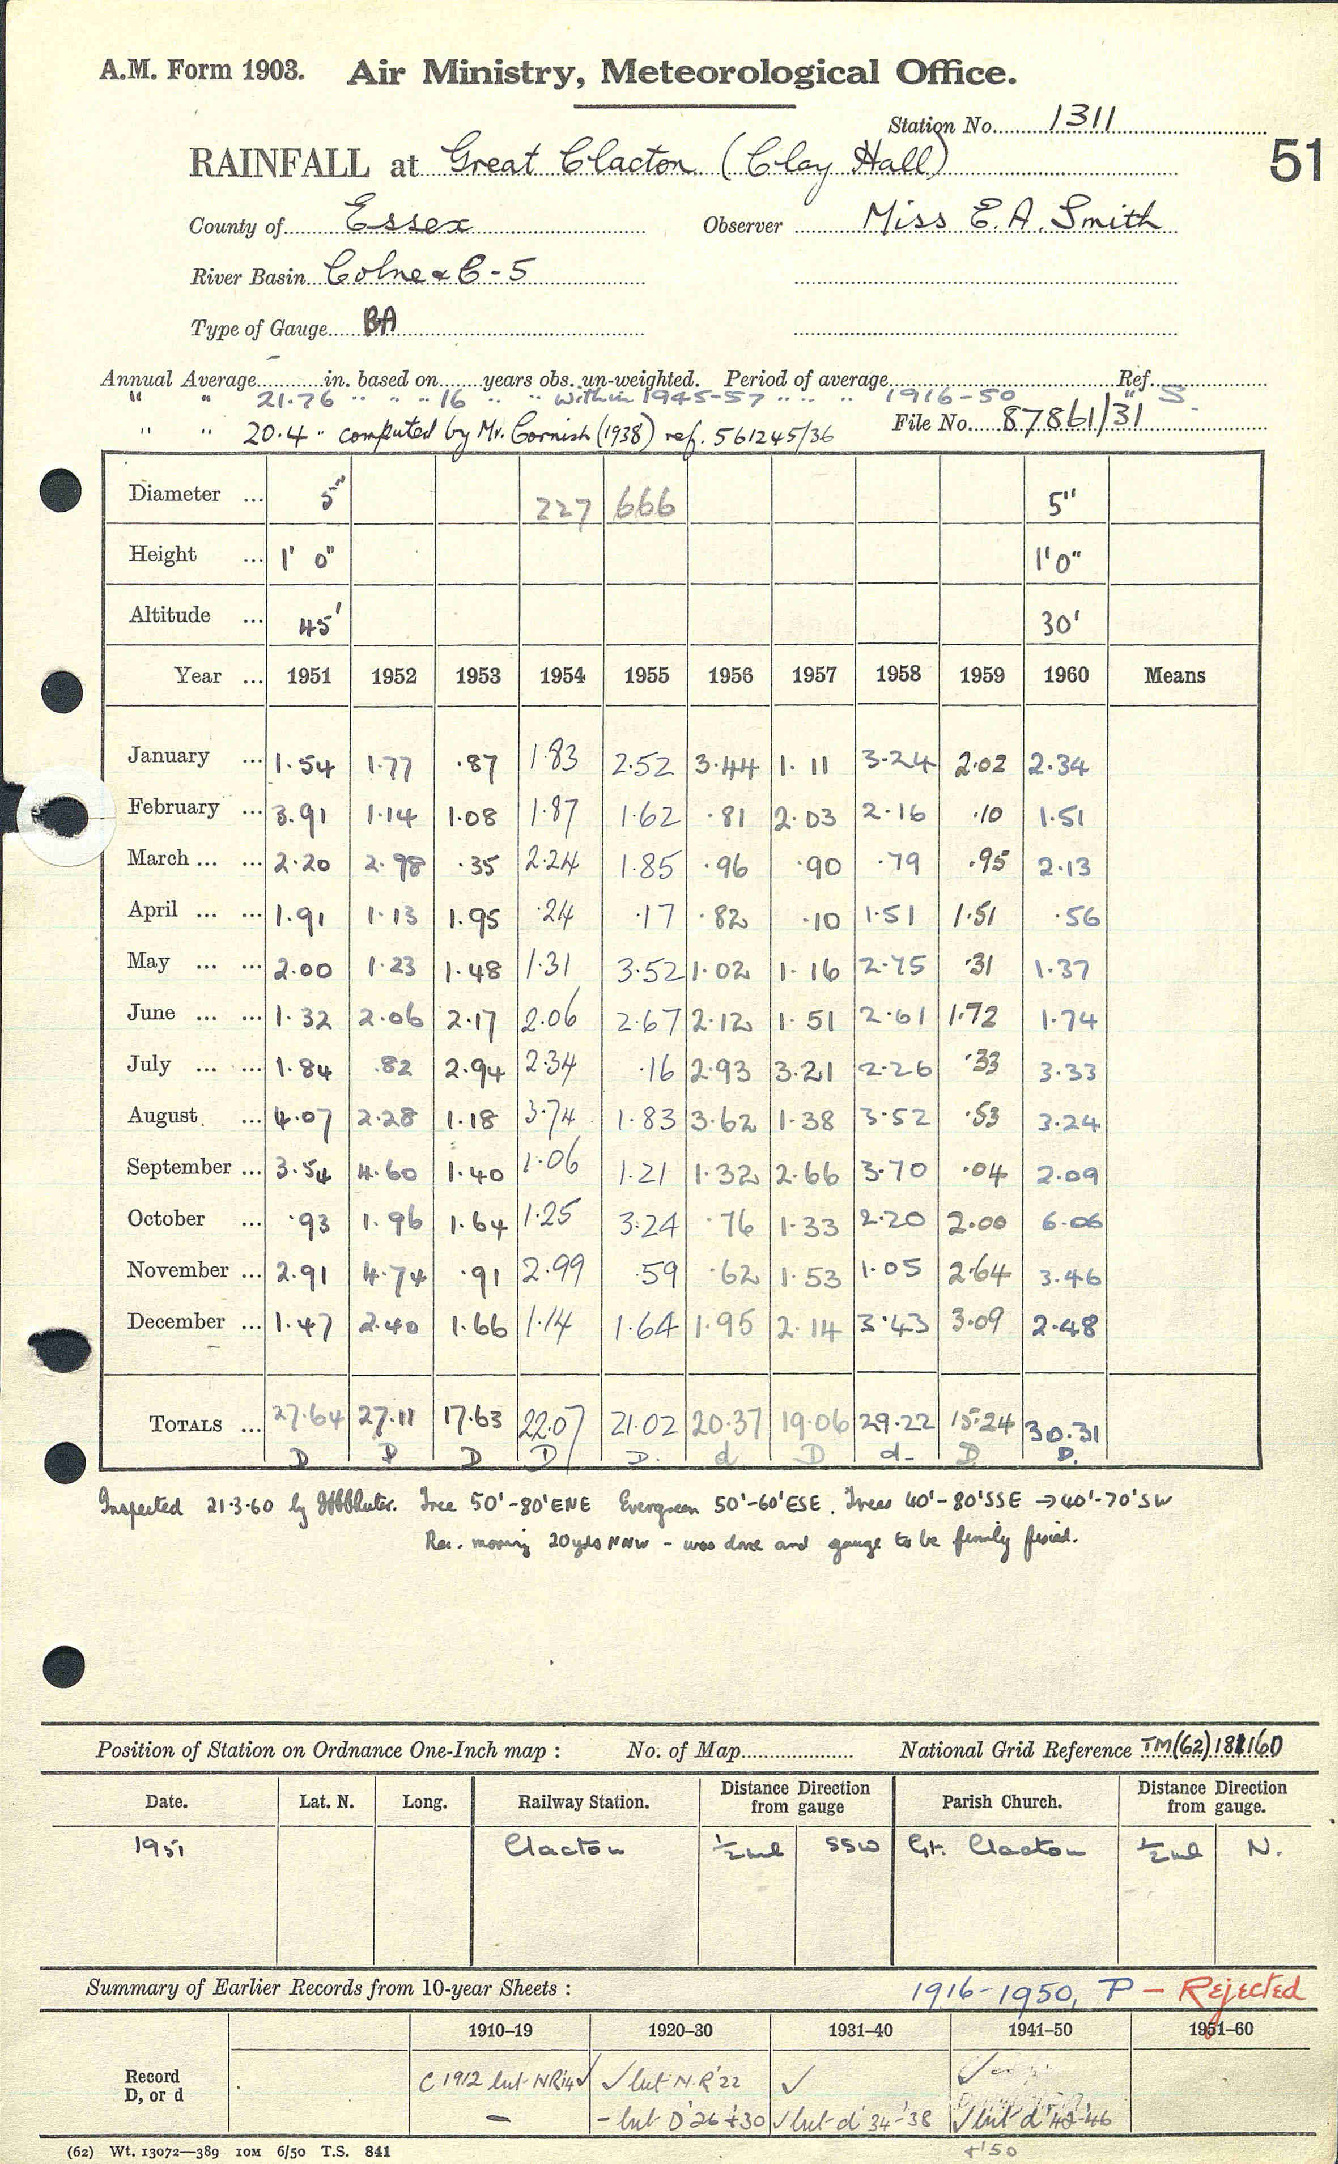 A.M. Form 1903. Air Ministry, Meteorological Office.
Station No. 1311
51
RAINFALL at Great Clacton (Clay Hall)
County of Essex Observer Miss E.A. Smith
River Basin Colne & C-5
Type of Gauge BA
Annual Average in. based on years obs. un-weighted. Period of average Ref.
" " 21.76 " " " 16 " " Within 1945-57 " " " 1916-50 " S.
File No. 87861/31
" " 20.4 " computed by Mr. Cornish (1938) ref. 561245/36
Diameter ... 5" 227 666 5"
Height ... 1' 0" 1'0"
Altitude ... 45' 30'
Year ... 1951 1952 1953 1954 1955 1956 1957 1958 1959 1960 Means
January ... 1.54 1.77 .87 1.83 2.52 3.44 1.11 3.24 2.02 2.34
February ... 3.91 1.14 1.08 1.87 1.62 .81 2.03 2.16 .10 1.51
March ... ... 2.20 2.98 .35 2.24 1.85 .96 .90 .79 .95 2.13
April ... ... 1.91 1.13 1.95 .24 .17 .82 .10 1.51 1.51 .56
May ... ... 2.00 1.23 1.48 1.31 3.52 1.02 1.16 2.75 .31 1.37
June ... ... 1.32 2.06 2.17 2.06 2.67 2.12 1.51 2.61 1.72 1.74
July ... ... 1.84 .82 2.94 2.34 .16 2.93 3.21 2.26 .33 3.33
August ... 4.07 2.28 1.18 3.74 1.83 3.62 1.38 3.52 .53 3.24
September ... 3.54 4.60 1.40 1.06 1.21 1.32 2.66 3.70 .04 2.09
October ... .93 1.96 1.64 1.25 3.24 .76 1.33 2.20 2.00 6.06
November ... 2.91 4.74 .91 2.99 .59 .62 1.53 1.05 2.64 3.46
December ... 1.47 2.40 1.66 1.14 1.64 1.95 2.14 3.43 3.09 2.48
TOTALS ... 27.64 27.11 17.63 22.07 21.02 20.37 19.06 29.22 15.24 30.31
D D D D D. d D d- D D.
Inspected 21.3.60 by Tree 50'-80' ENE Evergreen 50'-60' ESE. Trees 40'-80' SSE → 40'-70' SW
Rec. moving 20yds NNW - was done and gauge to be firmly fixed.
Position of Station on Ordnance One-Inch map : No. of Map National Grid Reference TM(62)181160
Date. Lat. N. Long. Railway Station. Distance from gauge Direction Parish Church. Distance from gauge. Direction
1951 Clacton ½ml SSW Gt. Clacton ½ml N.
Summary of Earlier Records from 10-year Sheets : 1916-1950, P - Rejected
1910-19 1920-30 1931-40 1941-50 1951-60
Record C 1912 but NR'14✓ ✓ but N.R'22 ✓ ✓
D, or d - - but D'26 +30 ✓ but d'34-'38 ✓ but d'42-46
+'50
(62) Wt. 13072—389 10M 6/50 T.S. 841